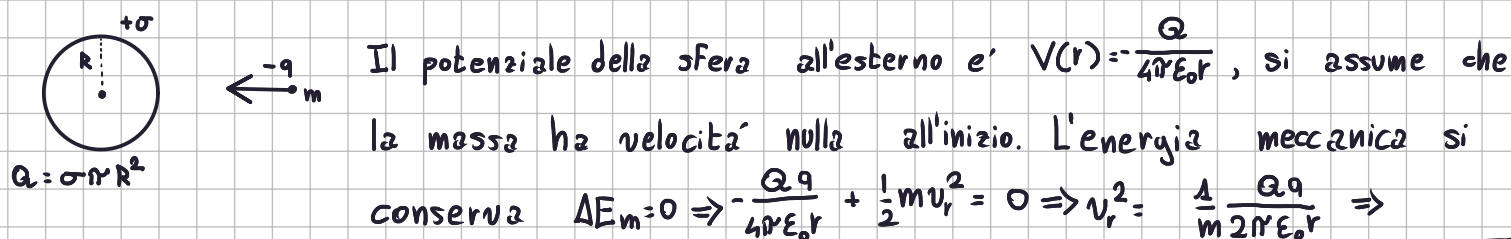 +σ
R
-q
m
Q = σπR²
Il potenziale della sfera all'esterno e' V(r)=-Q/4πε₀r , si assume che
la massa ha velocitá nulla all'inizio. L'energia meccanica si
conserva ΔEm=0 ⇒ -Qq/4πε₀r + 1/2 mvr² = 0 ⇒ vr² = 1/m Qq/2πε₀r ⇒